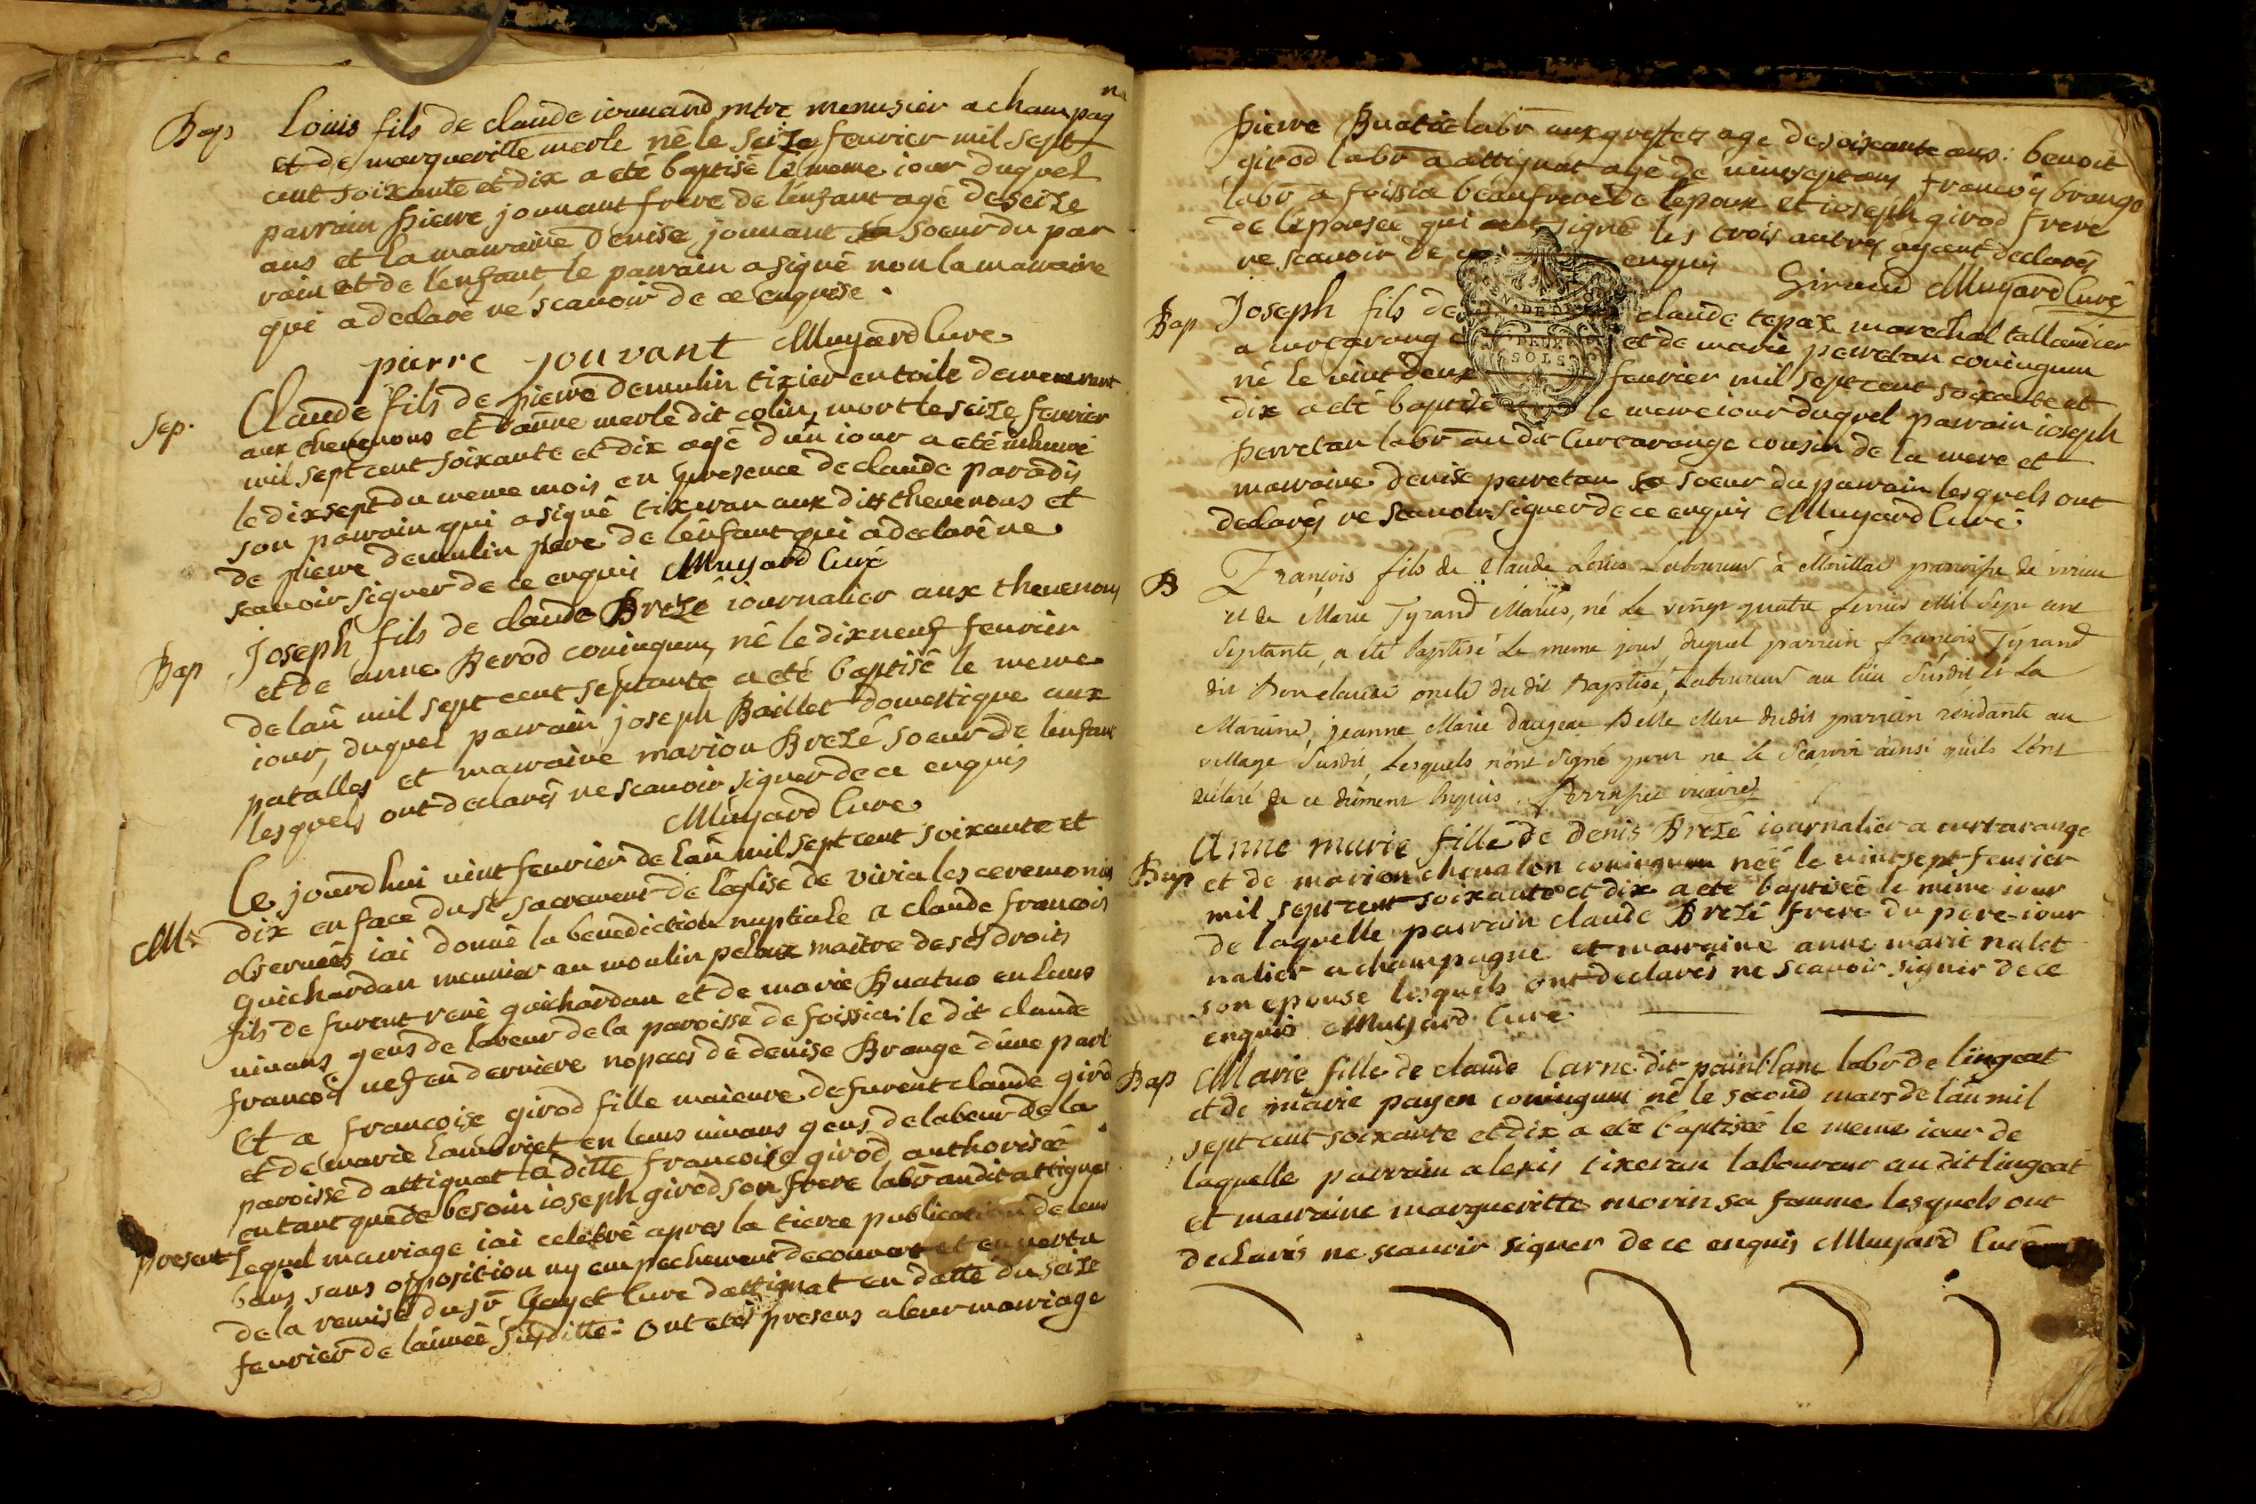 Bap Louis fils de claude iouuand mtre menusier a champag
ne
et de margueritte merle né le seize feurier mil sept
cent soixante et dix a eté baptisé le meme iour duquel
parrain pierre jouuant frere de l'enfant agé de seize
ans et la marraine denise jouuant soeur du par
rain et de l'enfant, le parrain a signé non la marraine
qui a declaré ne scauoir de ce enquise.
pierre jouvant Muyard Curé
Sep. Claude fils de pierre demulin tixier en toile demeurant
aux theuenons et d'anne merle dit colin, mort le seize feurier
mil sept cent soixante et dix agé d'un iour a eté inhumé
le dixsept du meme mois en presence de claude paradis
son parrain qui a signé tixeran aux dits theuenons et
de pierre demulin pere de l'enfant qui a declaré ne
scauoir signer de ce enquis Muyard Curé
Bap Joseph fils de claude Brezé iournalier aux theuenons
et de anne Berod coniugum, né le dixneuf feurier
de l'an mil sept cent septante a eté baptisé le meme
iour, duquel parrain joseph Baillet domestique aux
patalles et marraine marion Brezé soeur de l'enfant
lesquels ont declarés ne scauoir signer de ce enquis
Muyard Curé
M. Le jourdhui vint feurier de l'an mil sept cent soixante et
dix en face du st sacrement de l'eglise de viria les ceremonies
obseruées iai donné la benediction nuptiale a claude francois
guichardan meunier au moulin peloux maitre de ses droits
fils de furent rené guichardan et de marie Buatuo en leurs
viuans gens de labeur de la paroisse de foissia: le dit claude
francois uef en derniere nopces de denise Brange d'une part
Et a francoise girod fille maieure de furent claude girod
et de marie lambriet en leurs viuans gens de labeur de la
paroisse d'attignat la ditte francoise girod authorisée
en tant que de besoin ioseph girod son frere labr au dit attignat
present lequel marriage iai celebré apres la tierce publication de leurs
bans sans opposition ny empechement decouuert et en vertu
de la remise du sr Gayet Curé d'attignat en datte du seize
feurier de l'année susditte: ont etés presens a leur marriage
pierre Buatié labr aux greffets agé de soixante ans: benoit
girod labr a attignat agé de vintsept ans francois brange
labr a foissia beaufrere de l'epoux et ioseph girod frere
de l'epousée qui ont signé les trois autres ayant declarés
ne scauoir de ce enquis Giroud Muyard Curé
GEN. DE DIJON
DEUX
SOLS
Bap Joseph fils de claude tepaz marechal tallandier
a curtarange et de marie perretan coniugum
né le vint deux feurier mil sept cent soixante et
dix a eté baptisé le meme iour duquel parrain ioseph
perretan labr au dit Curtarange cousin de la mere et
marraine denise perretan soeur du parrain lesquels ont
declarés ne scauoir signer de ce enquis Muyard Curé.
B François fils de Claude Loüis Laboureur à Moüillar paroisse de viriat
et de Marie Tyrand Mariés, né Le vingt quatre fevrier Mil Sept cent
Septante, a eté baptisé Le meme jour, duquel parrain françois Tyrand
dit Bon claude oncle du dit Baptisé, Laboureur au lieu Susdit et La
Maraine, jeanne Marie daujeau Belle Mere dudit parrain résidante au
village Susdit, Lesquels n'ont Signé pour ne le Scavoir ainsi qu'ils L'ont
déclaré de ce düment Enquis. vicaire
Bap Anne marie fille de denis Brezé iournalier a curtarange
et de marion cheualon coniugum néé le vintsept feurier
mil sept cent soixante et dix a eté baptisée le même iour
de laquelle parrain claude Brezé frere du pere iour
nalier a champagne et marraine anne marie nalet
son epouse lesquels ont declarés ne scauoir signer de ce
enquis Muyard Curé
Bap Marie fille de claude Carne dit painblanc labr de lingeat
et de marie payen coniugum né le second mars de l'an mil
sept cent soixante et dix a eté baptisée le meme iour de
laquelle parrain alexis tixeran laboureur au dit lingeat
et marraine margueritte morin sa femme lesquels ont
declarés ne scauoir signer de ce enquis Muyard Curé